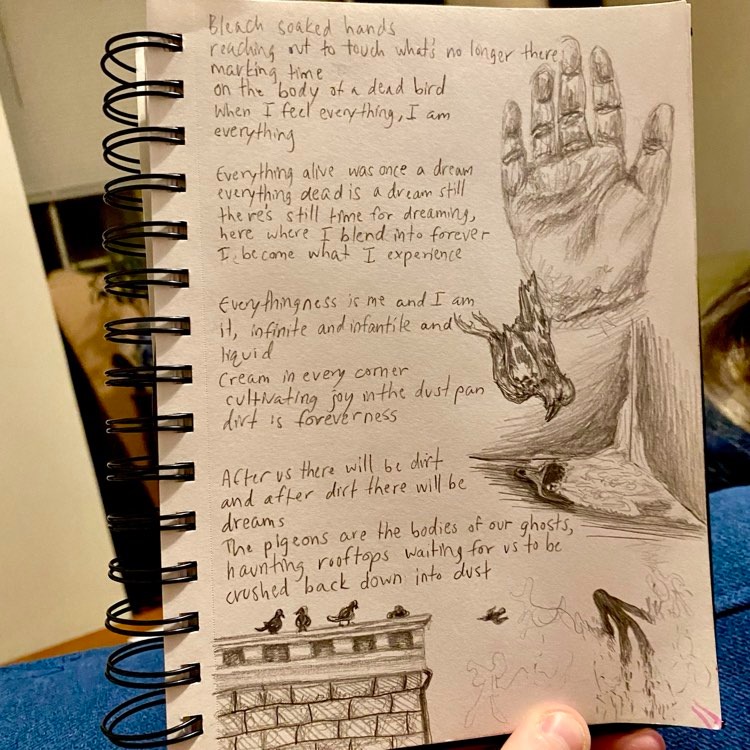 Bleach soaked hands
reaching out to touch what's no longer there,
marking time
on the body of a dead bird
When I feel everything, I am
everything
Everything alive was once a dream
everything dead is a dream still
there's still time for dreaming,
here where I blend into forever
I become what I experience
Everythingness is me and I am
it, infinite and infantile and
liquid
Cream in every corner
cultivating joy in the dust pan
dirt is foreverness
After us there will be dirt
and after dirt there will be
dreams
The pigeons are the bodies of our ghosts,
haunting rooftops waiting for us to be
crushed back down into dust